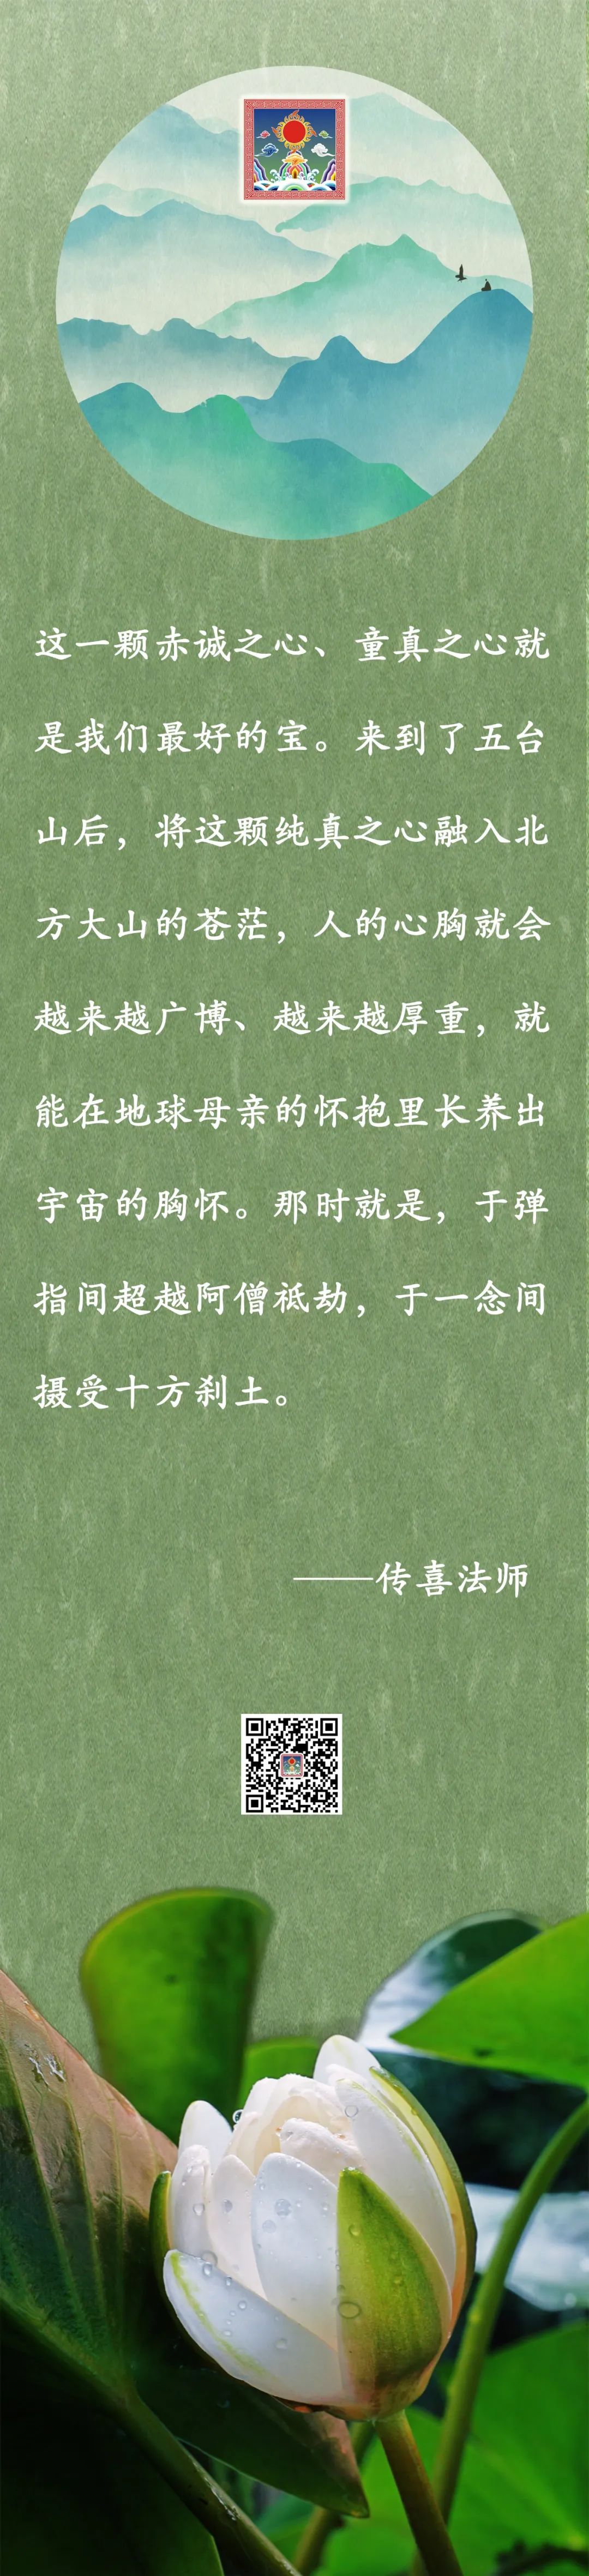 这一颗赤诚之心、童真之心就
是我们最好的宝。来到了五台
山后，将这颗纯真之心融入北
方大山的苍茫，人的心胸就会
越来越广博、越来越厚重，就
能在地球母亲的怀抱里长养出
宇宙的胸怀。那时就是，于弹
指间超越阿僧祇劫，于一念间
摄受十方刹土。
——传喜法师